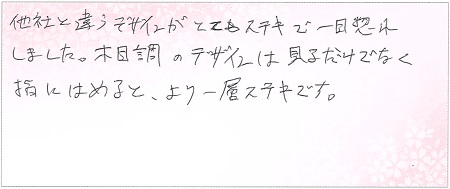 他社と違うデザインがとてもステキで一目惚れ
しました。木目調のデザインは見るだけでなく
指にはめると、より一層ステキです。